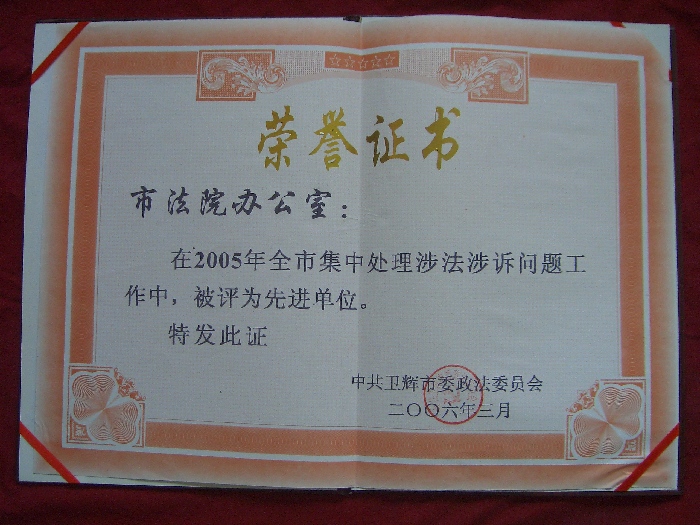 荣誉证书
市法院办公室：
在2005年全市集中处理涉法涉诉问题工
作中，被评为先进单位。
特发此证
中共卫辉市委政法委员会
二〇〇六年三月